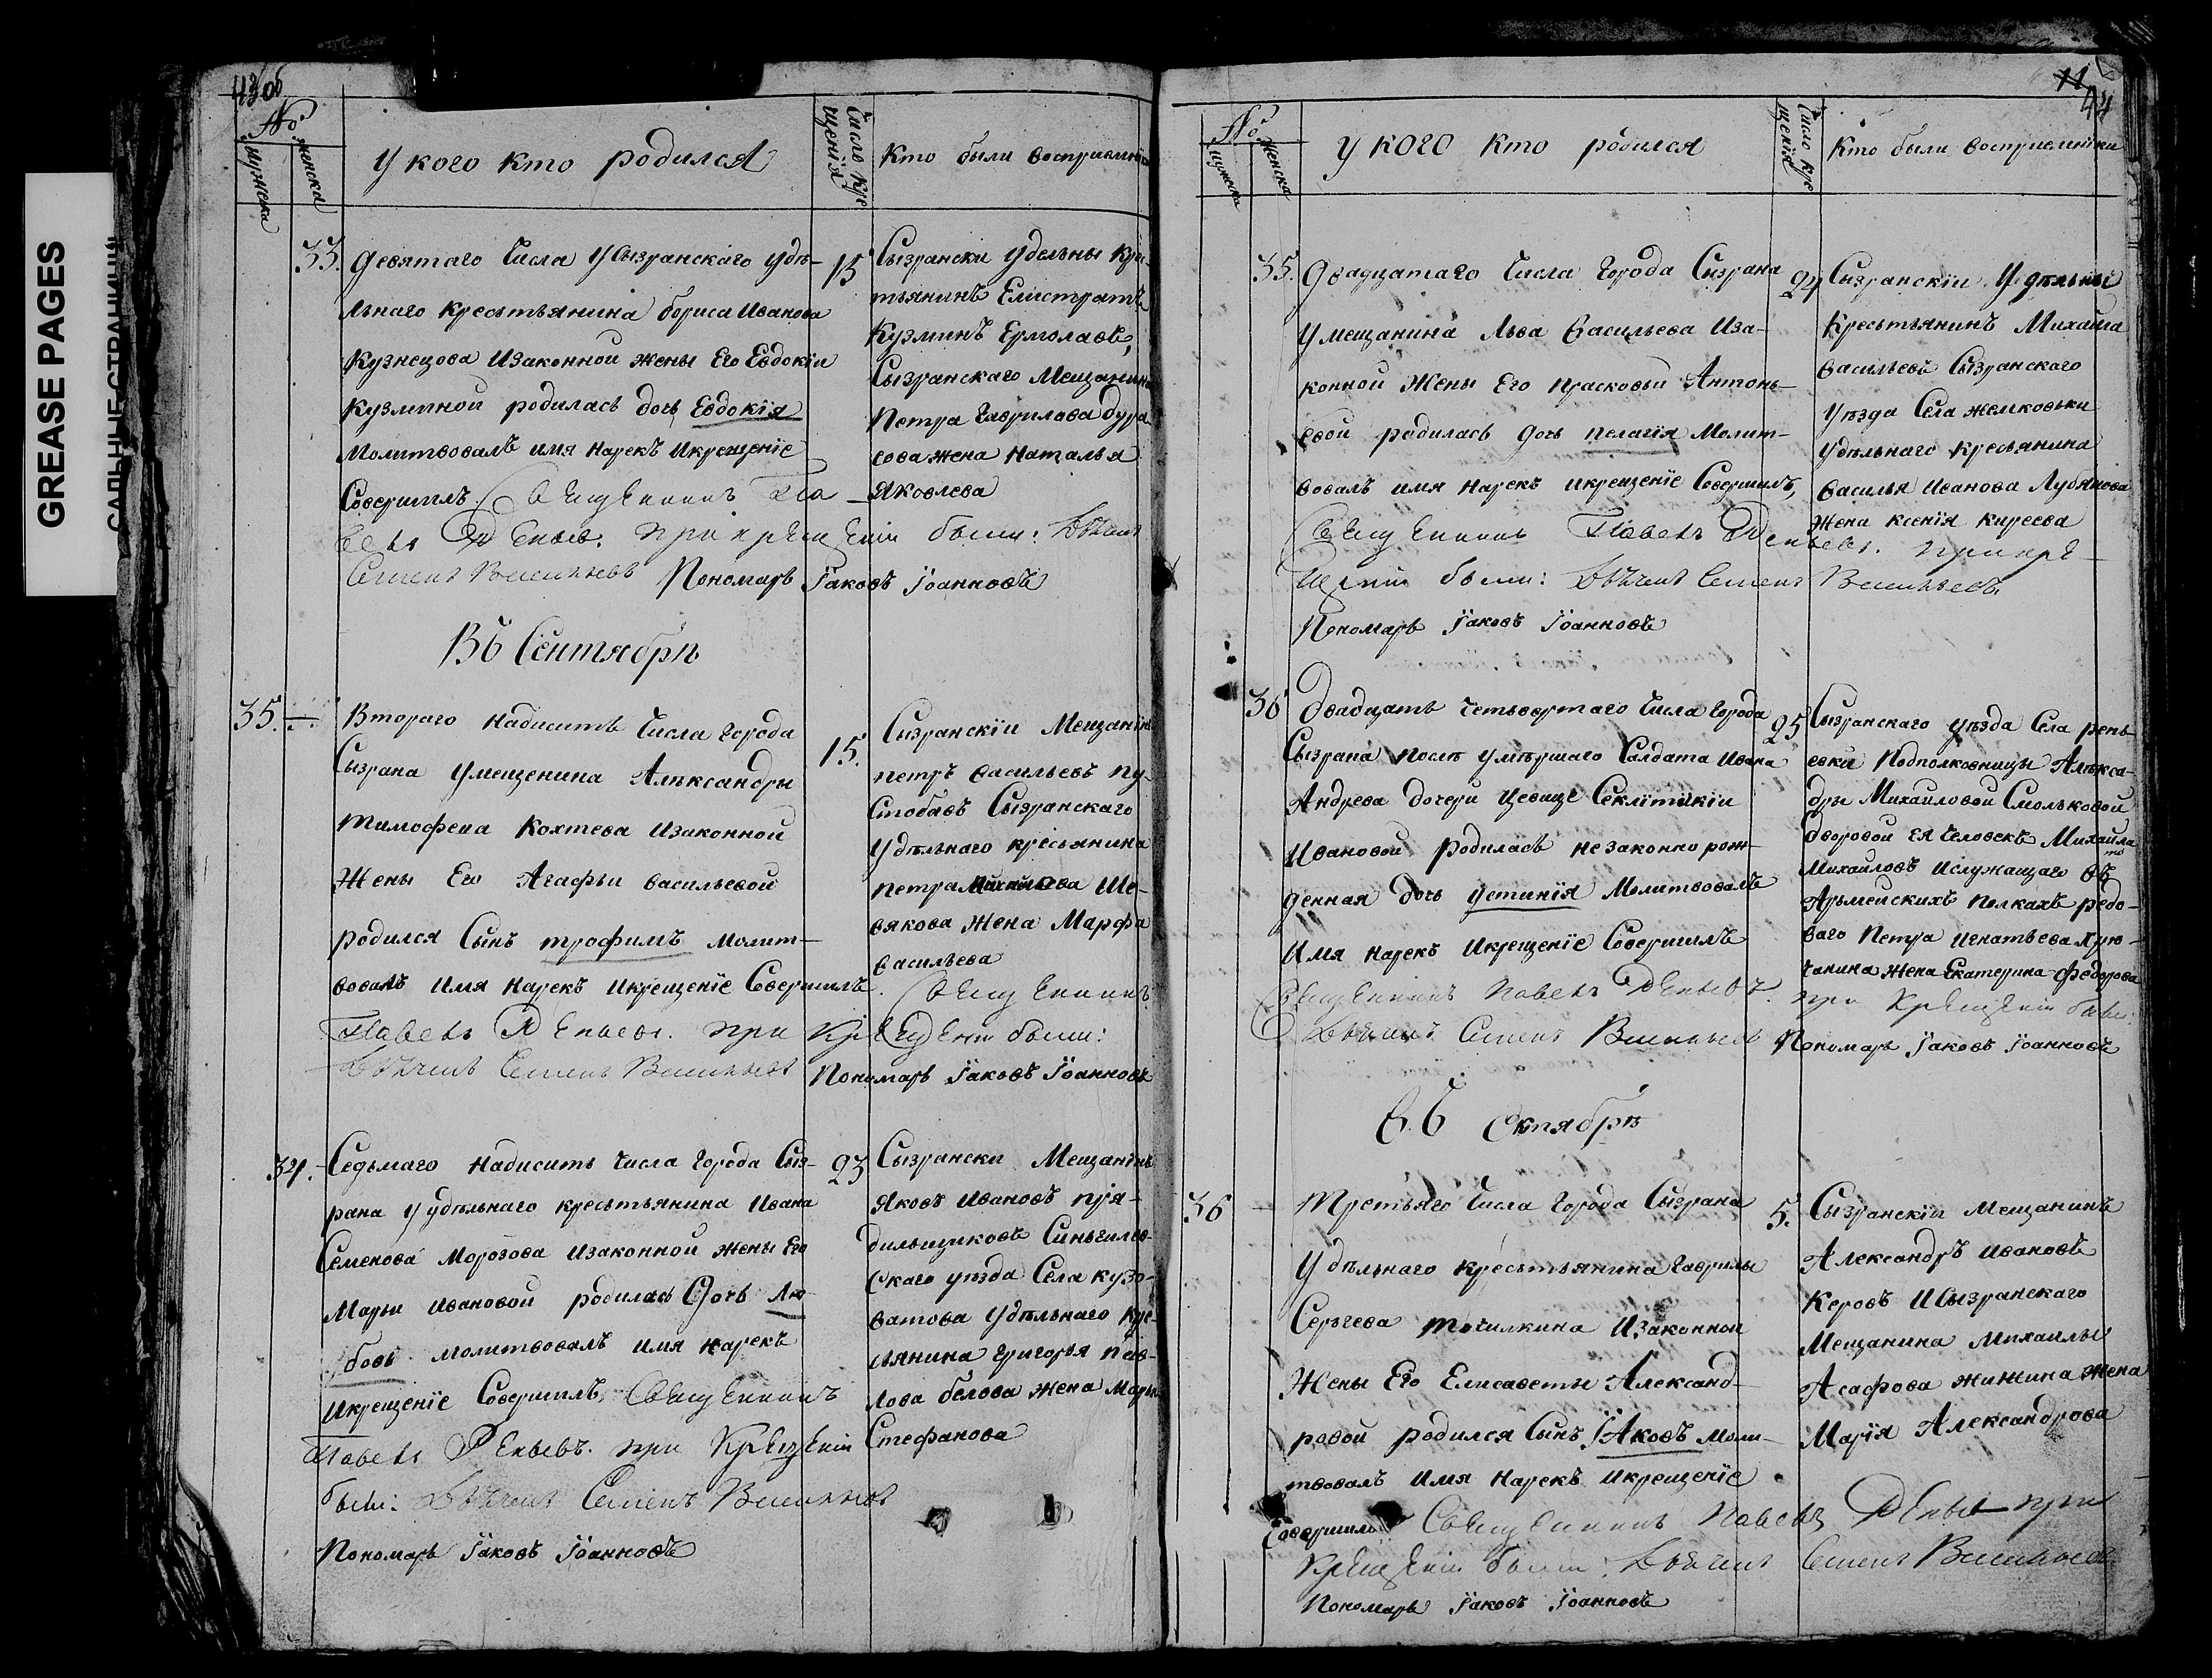 GREASE PAGES
САЛЬНЫЕ СТРАНИЦЫ
43об
№
мужска
женска
у кого кто родился
Число кре
щенія
Кто были восприемники
33. Девятаго Числа у Сызранскаго удѣ-
льнаго крестьянина бориса Иванова
Кузнецова Изаконной жены Его Евдокіи
Кузминой родилась дочь Евдокія
Молитвовалъ имя нарекъ Икрещеніе
Совершилъ. Священникъ Па
велъ при крещеніи были:
Семенъ Васильевъ Пономарь Іаковъ Іоанновъ
15
Сызрански удельны кре-
тьянинъ Елистратъ
Кузминъ Ермолаевъ,
Сызранскаго Мещанина
Петра Гаврилова дура
сова жена Наталья
Яковлева
Въ Сентябрѣ
35. — Втораго Надисить Числа Города
Сызрана Умещенина Алѣксандры
Тимофеиа Кохтева Изаконной
Жены Его Агафьи Васильевой
родился Сынъ трофимъ Молит-
вовалъ Имя Нарекъ Икрещеніе Совершилъ. Священникъ
Павелъ при крещеніи были:
Семенъ Васильевъ Пономарь Іаковъ Іоанновъ
15.
Сызранскіи Мещанинъ
петръ Васильевъ пу-
стобаевъ Сызранскаго
Удѣльнаго кресьянина
петра Михайлова Ше-
вякова Жена Марфа
Васильева
34. Седьмаго Надисить Числа Города Сыз-
рана у удѣльнаго крестьянина Ивана
Семенова Морозова Изаконной жены Его
Марьи Ивановой родилась Дочь Лю-
бовь молитвовалъ имя нарекъ
Икрещеніе Совершилъ, Священникъ
Павелъ при Крещеніи
были: Семенъ Васильевъ
Пономарь Іаковъ Іоанновъ
23
Сызрански Мещанинъ
Яковъ Ивановъ пря-
дильщиковъ Синьгилев-
скаго уѣзда Села кузо-
ватова Удѣльнаго кре-
сьянина Григорья пав-
лова белова жена Марья
Стефанова
11
44
№
мужска
женска
у кого кто родился
Число кре
щенія
Кто были восприемники
35. Двадцатаго Числа Города Сызрана
Умещанина Льва Васильева Иза-
конной Жены Его прасковьи Антонь-
евой родилась дочь пелагія Молит-
вовалъ имя нарекъ икрещеніе Совершилъ,
Священникъ Павелъ при кре-
щеніи были: Семенъ Васильевъ,
Пономарь Іаковъ Іоанновъ
24
Сызранскіи Удѣльны
Крестьянинъ Михаила
Васильевъ Сызранскаго
Уѣзда Села жемковьки
Удѣльнаго кресьянина
Василья Иванова Лубянова
Жена ксенія киреева
36 Двадцать четьвертаго Числа Города
Сызрана послѣ умѣршаго Салдата Ивана
Андрева дочери девице Секлитикіи
Ивановой родилась незаконно рож-
денная дочь Устинія Молитвовалъ
Имя нарекъ Икрещеніе Совершилъ
Священникъ Павелъ при крещеніи были:
Семенъ Васильевъ Пономарь Іаковъ Іоанновъ
25
Сызранскаго уѣзда Села рень-
евки Подполковницы Алѣкса-
дры Михаиловой Смольковой
дворовой ея человекъ Михаила
Михаиловъ Ислужащаго въ
Арьмейскихъ полкахъ редо-
ваго Петра Игнатьева Хрю-
чанина жена Екатерина Федорова
Въ Октябрѣ
36 — Третьяго Числа Города Сызрана
Удѣльнаго крестьянина Гаврилы
Серьгева Точилкина Изаконной
Жены Его Елисаветы Александ-
ровой родился Сынъ Іаковъ моли-
твовалъ Имя Нарекъ Икрещеніе
Совершилъ Священникъ Павелъ при
Крещеніи были: Семенъ Васильевъ
Пономарь Іаковъ Іоанновъ
5.
Сызранскіи Мещанинъ
Александръ Ивановъ
Керовъ Исызранскаго
Мещанина Михаилы
Асафова жижина Жена
Марія Александрова